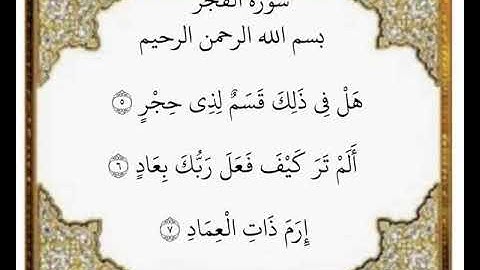 سورة الفجر
بسم الله الرحمن الرحيم
هَلْ فِي ذَلِكَ قَسَمٌ لِذِي حِجْرٍ ٥
أَلَمْ تَرَ كَيْفَ فَعَلَ رَبُّكَ بِعَادٍ ٦
إِرَمَ ذَاتِ الْعِمَادِ ٧